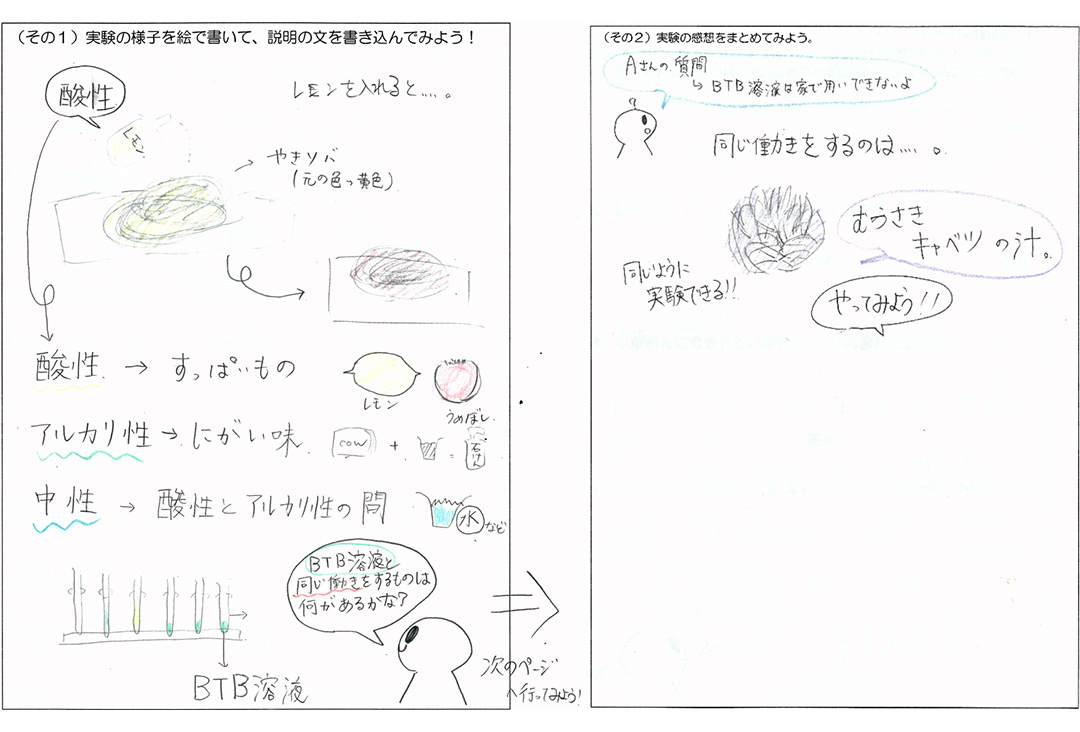 (その1)実験の様子を絵で書いて、説明の文を書き込んでみよう!
酸性
レモンを入れると....。
レモン
やきソバ
(元の色っ黄色)
酸性 → すっぱいもの
レモン
うめぼし
アルカリ性→にがい味
cow + = 石けん
中性 → 酸性とアルカリ性の間
水 など
BTB溶液と
同じ働きをするものは
何があるかな?
BTB溶液
次のページ
へ行ってみよう!
(その2)実験の感想をまとめてみよう。
Aさんの質問
↳ BTB溶液は家で用いできないよ
?
同じ働きをするのは....。
むらさき
キャベツの汁。
同じように
実験できる!!
やってみよう!!